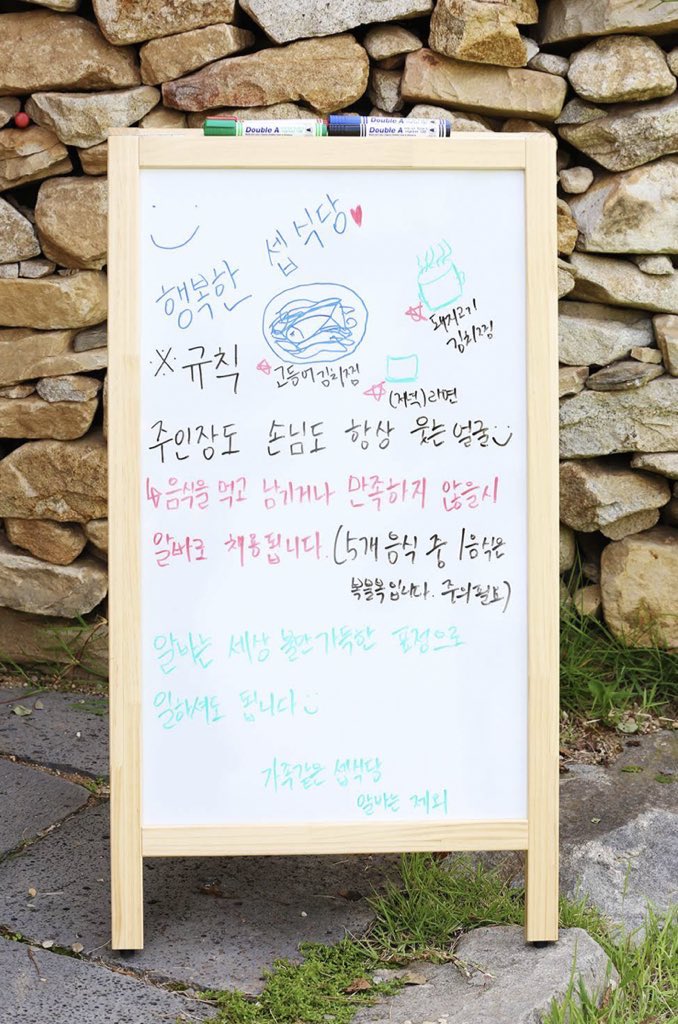 Double A Double A
행복한 셉식당
돼지고기
김치찜
※ 규칙
고등어김치찜
(저녁)라면
주인장도 손님도 항상 웃는 얼굴
음식을 먹고 남기거나 만족하지 않을시
알바로 채용됩니다. (5개 음식 중 1음식은
복불복입니다. 주의필요)
알바는 세상 불만가득한 표정으로
일하셔도 됩니다
가족같은 셉식당
알바는 제외